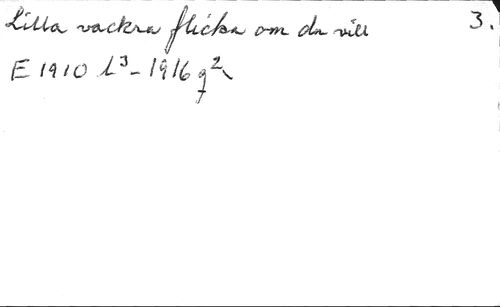 Lilla vackra flicka om du vill 3.
E 1910 l³ - 1916 g²